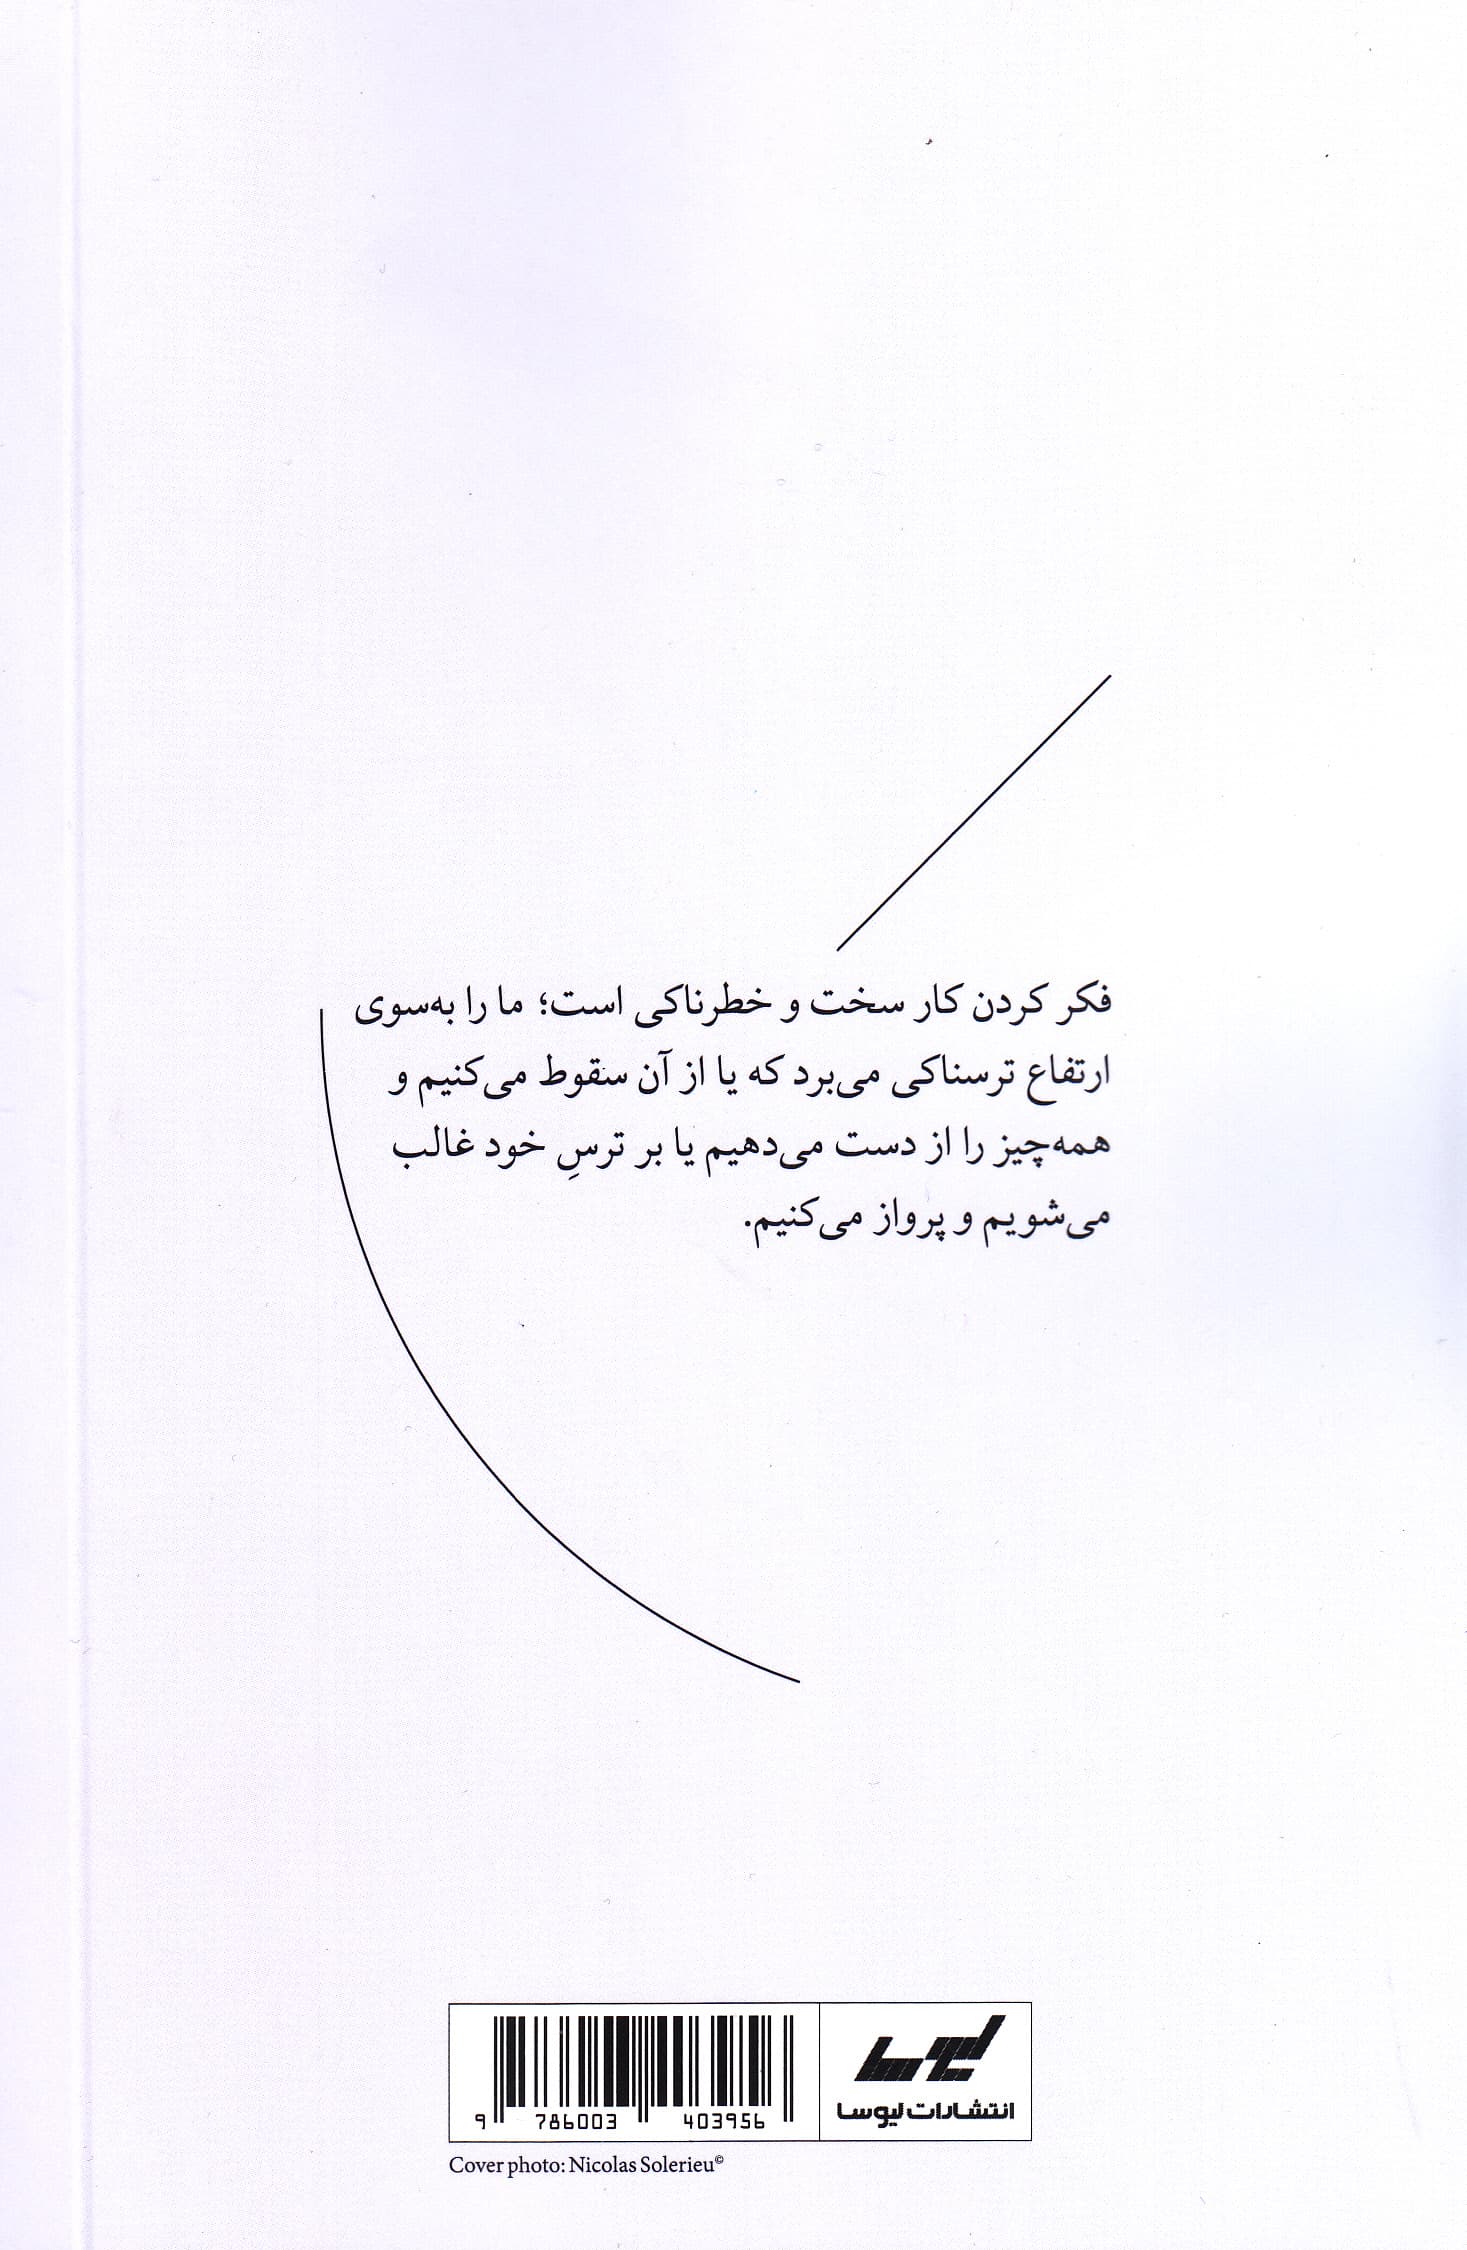 فکر کردن کار سخت و خطرناکی است؛ ما را به‌سوی
ارتفاع ترسناکی می‌برد که یا از آن سقوط می‌کنیم و
همه‌چیز را از دست می‌دهیم یا بر ترسِ خود غالب
می‌شویم و پرواز می‌کنیم.
لیوسا
انتشارات لیوسا
9 786003 403956
Cover photo: Nicolas Solerieu©